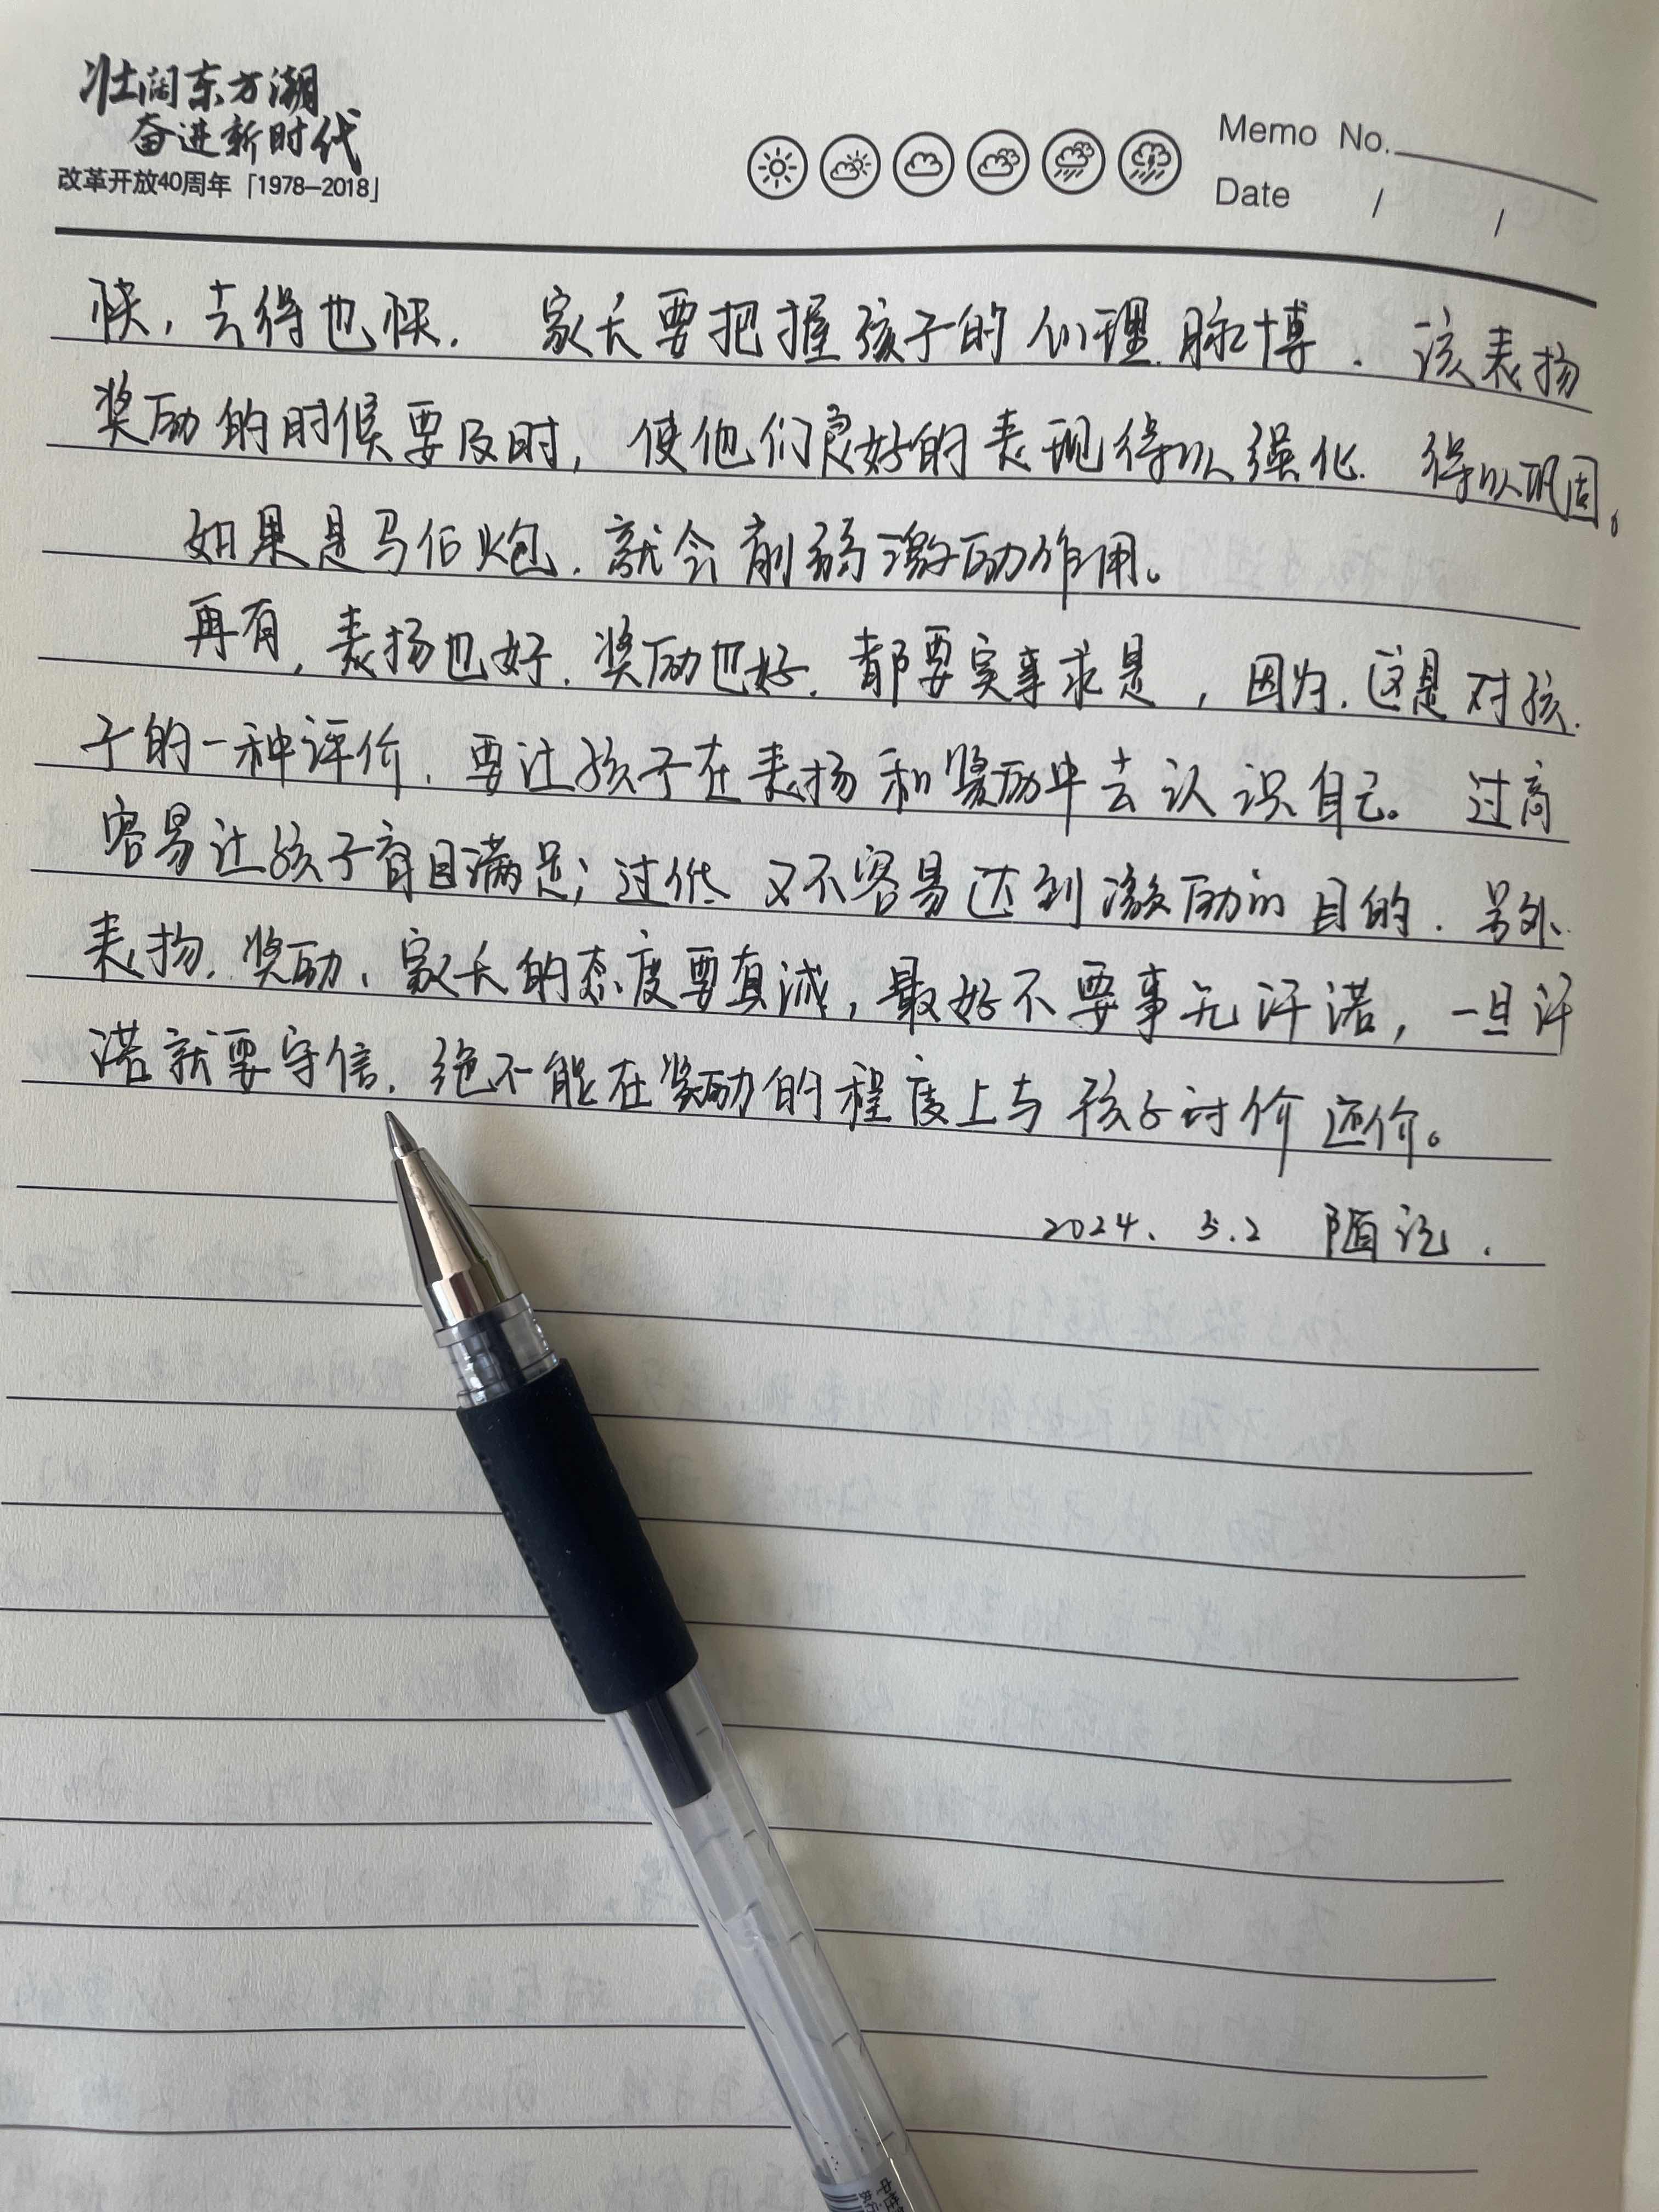 壮阔东方潮
奋进新时代
改革开放40周年「1978-2018」
Memo No.
Date / /
快，去得也快. 家长要把握孩子的心理脉博. 该表扬
奖励的时候要及时，使他们良好的表现得以强化. 得以巩固。
如果是马后炮. 就会削弱激励作用。
再有, 表扬也好. 奖励也好. 都要实事求是，因为. 这是对孩.
子的一种评价. 要让孩子在表扬和奖励中去认识自己。过高
容易让孩子盲目满足；过低又不容易达到激励的目的. 另外.
表扬. 奖励、家长的态度要真诚，最好不要事先许诺，一旦许
诺就要守信. 绝不能在奖励的程度上与孩子讨价还价。
2024. 5.2 随记.
中性